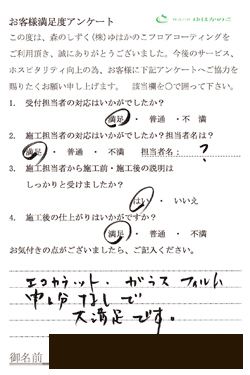 お客様満足度アンケート
この度は、森のしずく(株)ゆはかのこフロアコーティングを
ご利用頂き、誠にありがとうございました。今後のサービス、
ホスピタリティ向上の為、お客様に下記アンケートへご協力を
賜りたくお願い申し上げます。 該当欄を○で囲って下さい。
1. 受付担当者の対応はいかがでしたか?
満足 ・ 普通 ・ 不満
2. 施工担当者の対応はいかがでしたか?担当者名は?
満足 ・ 普通 ・ 不満 担当者名: ?
3. 施工担当者から施工前・施工後の説明は
しっかりと受けましたか?
はい ・ いいえ
4. 施工後の仕上がりはいかがですか?
満足 ・ 普通 ・ 不満
お気付きの点がございましたら、ご記入ください。
エコカラット、ガラスフィルム
申し分なしで
大満足です。
御名前